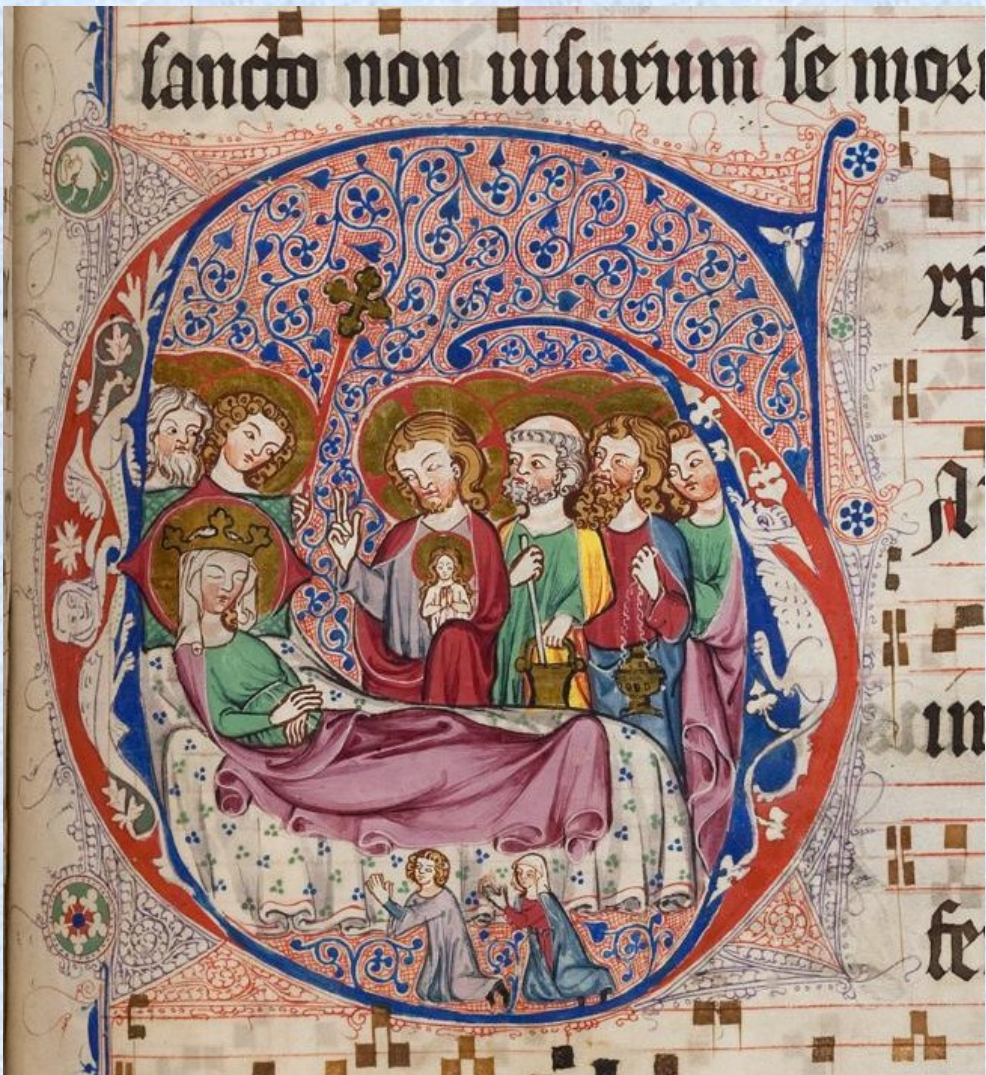 sancto non uisurum se mor
G
xp
A
in
fe